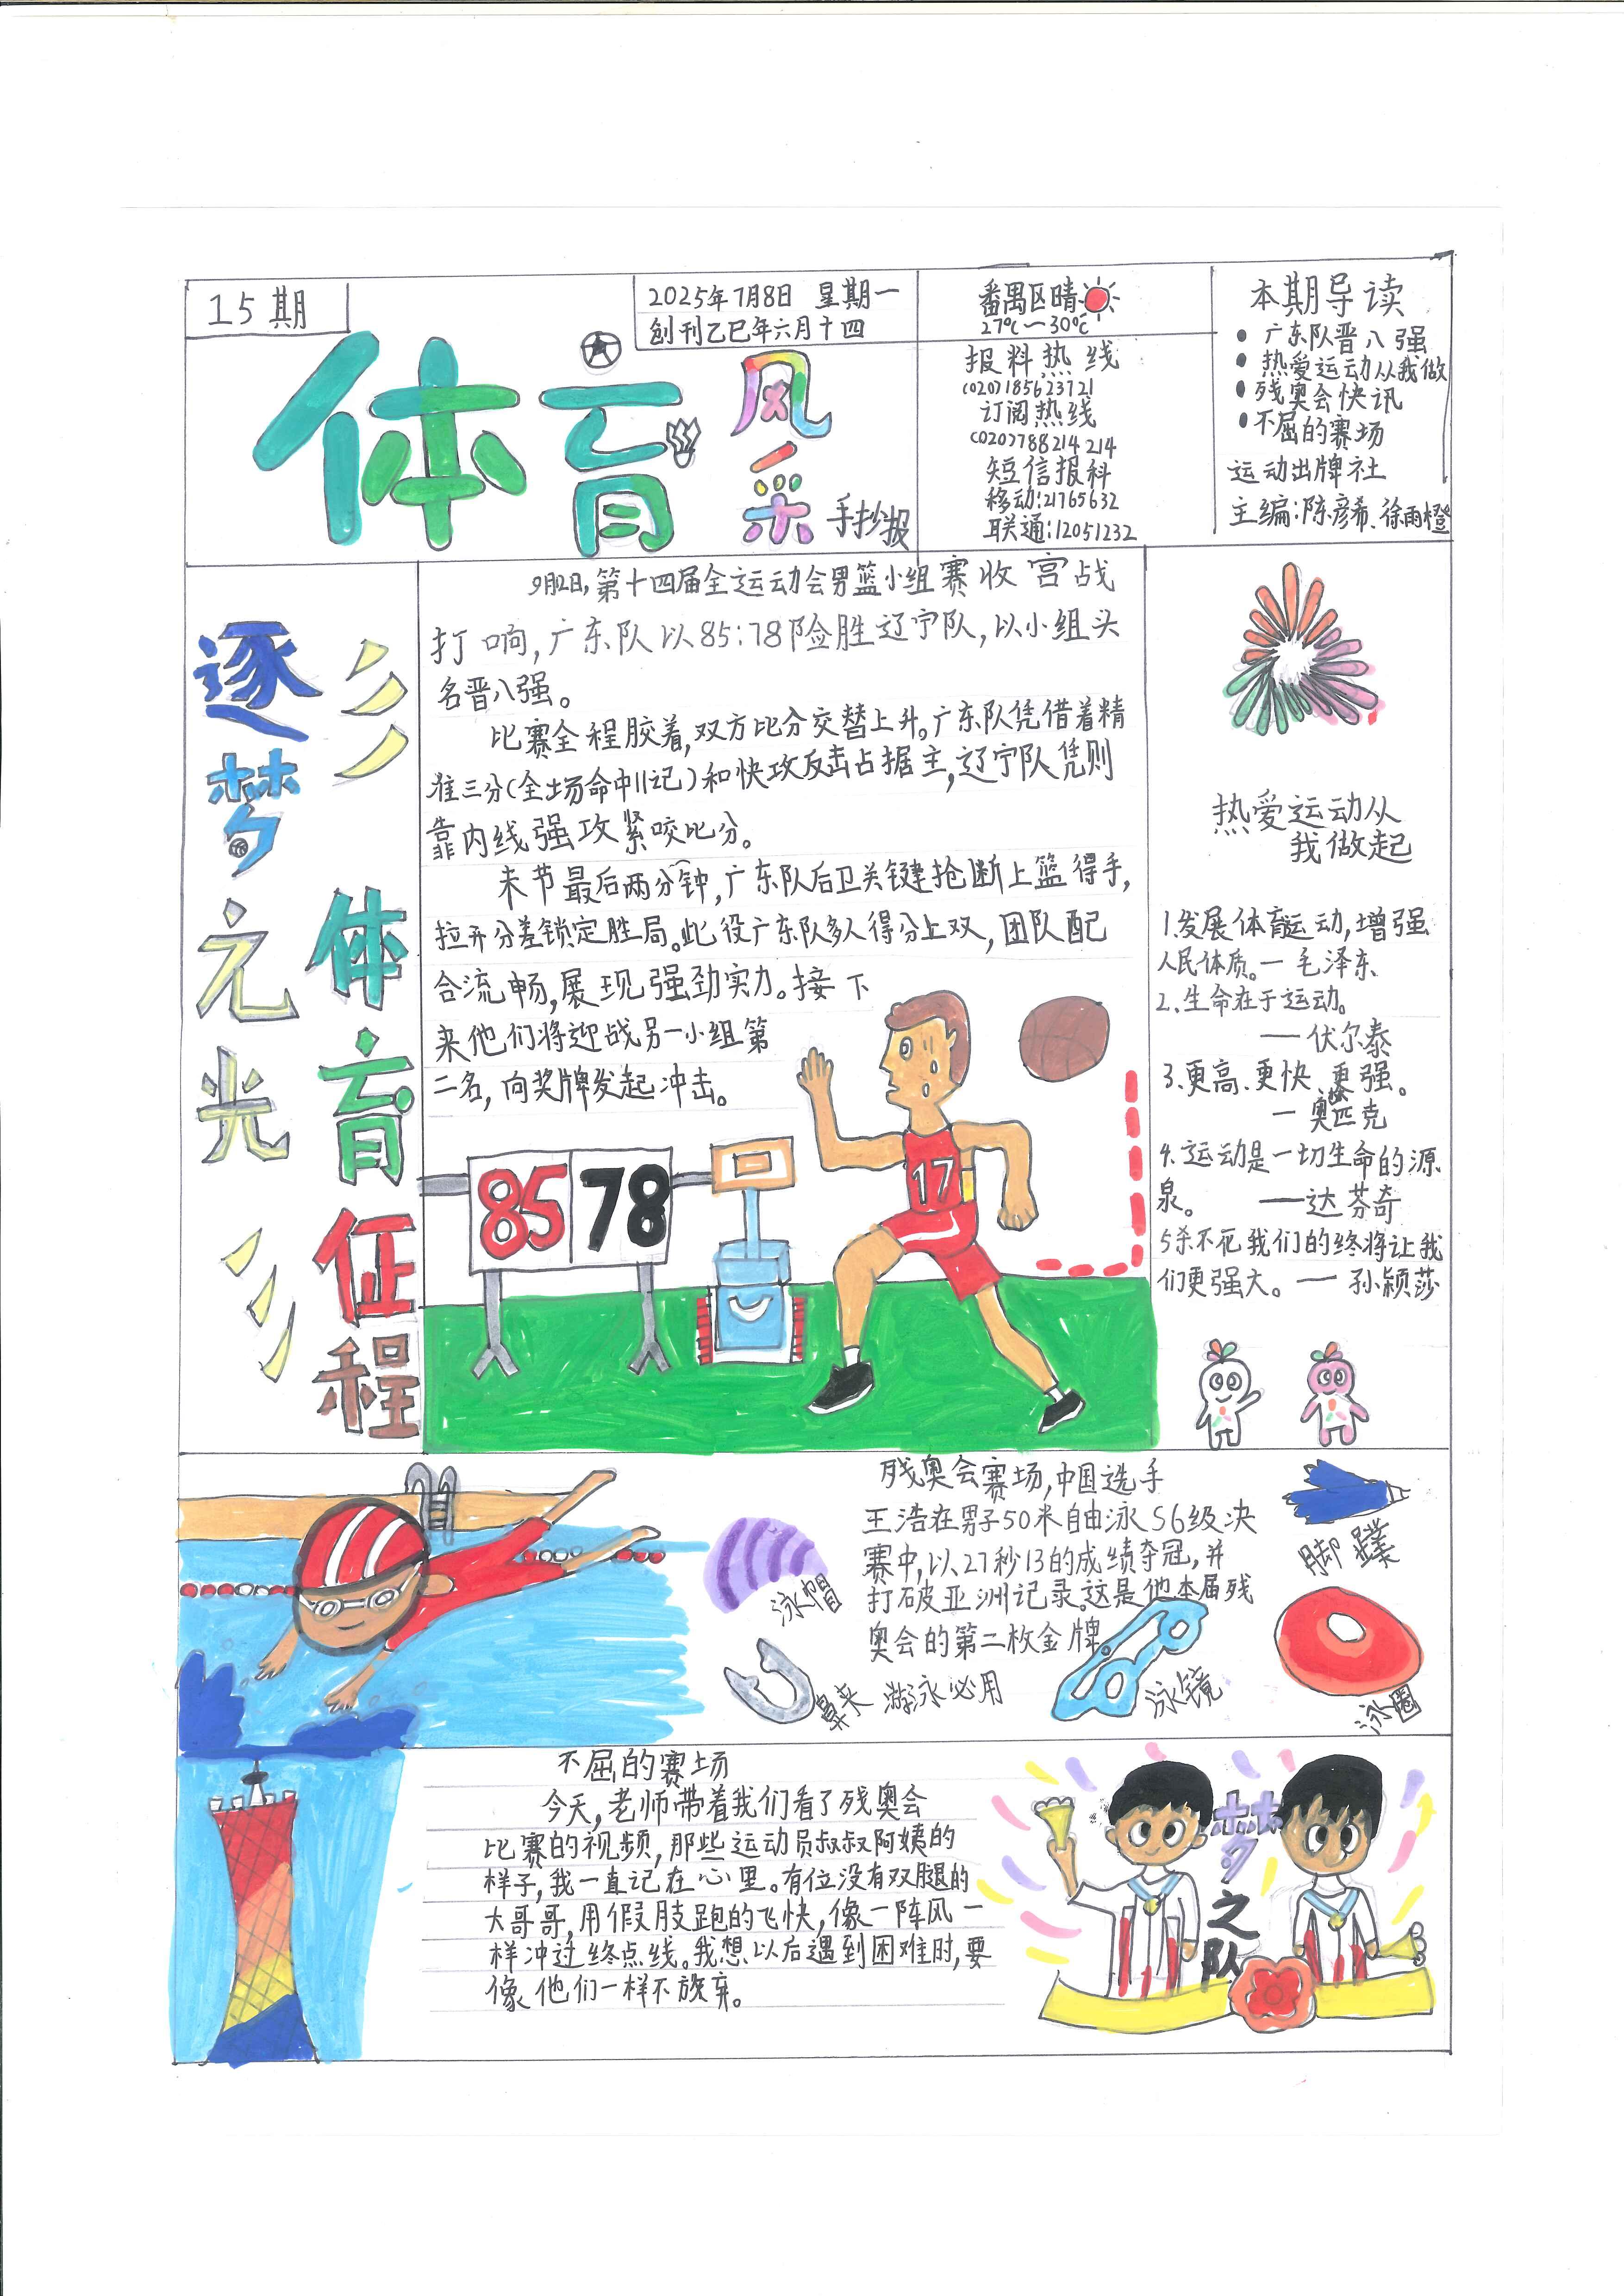 15期
2025年7月8日 星期一
创刊乙巳年六月十四
体育风采
手抄报
番禺区晴
27℃—30℃
报料热线
(020)185623721
订阅热线
(020)788214214
短信报料
移动:21765632
联通:12051232
本期导读
• 广东队晋八强
• 热爱运动从我做
• 残奥会快讯
• 不屈的赛场
运动出牌社
主编:陈彦希、徐雨橙
逐梦之光
体育征程
9月2日,第十四届全运动会男篮小组赛收宫战
打响,广东队以85:78险胜辽宁队,以小组头
名晋八强。
比赛全程胶着,双方比分交替上升。广东队凭借着精
准三分(全场命中11记)和快攻反击占据主,辽宁队凭则
靠内线强攻紧咬比分。
末节最后两分钟,广东队后卫关键抢断上篮得手,
拉开分差锁定胜局。此役广东队多人得分上双,团队配
合流畅,展现强劲实力。接下
来他们将迎战另一小组第
二名,向奖牌发起冲击。
85 78
17
热爱运动从
我做起
1.发展体育运动,增强
人民体质。—毛泽东
2.生命在于运动。
——伏尔泰
3、更高、更快、更强。
—奥林匹克
4.运动是一切生命的源
泉。 ——达芬奇
5杀不死我们的终将让我
们更强大。——孙颖莎
残奥会赛场,中国选手
王浩在男子50米自由泳S6级决
赛中,以27秒13的成绩夺冠,并
打破亚洲记录。这是他本届残
奥会的第二枚金牌
泳帽
鼻夹
游泳必用
泳镜
脚蹼
泳圈
不屈的赛场
今天,老师带着我们看了残奥会
比赛的视频,那些运动员叔叔阿姨的
样子,我一直记在心里。有位没有双腿的
大哥哥,用假肢跑的飞快,像一阵风一
样冲过终点线。我想以后遇到困难时,要
像他们一样不放弃。
梦之队